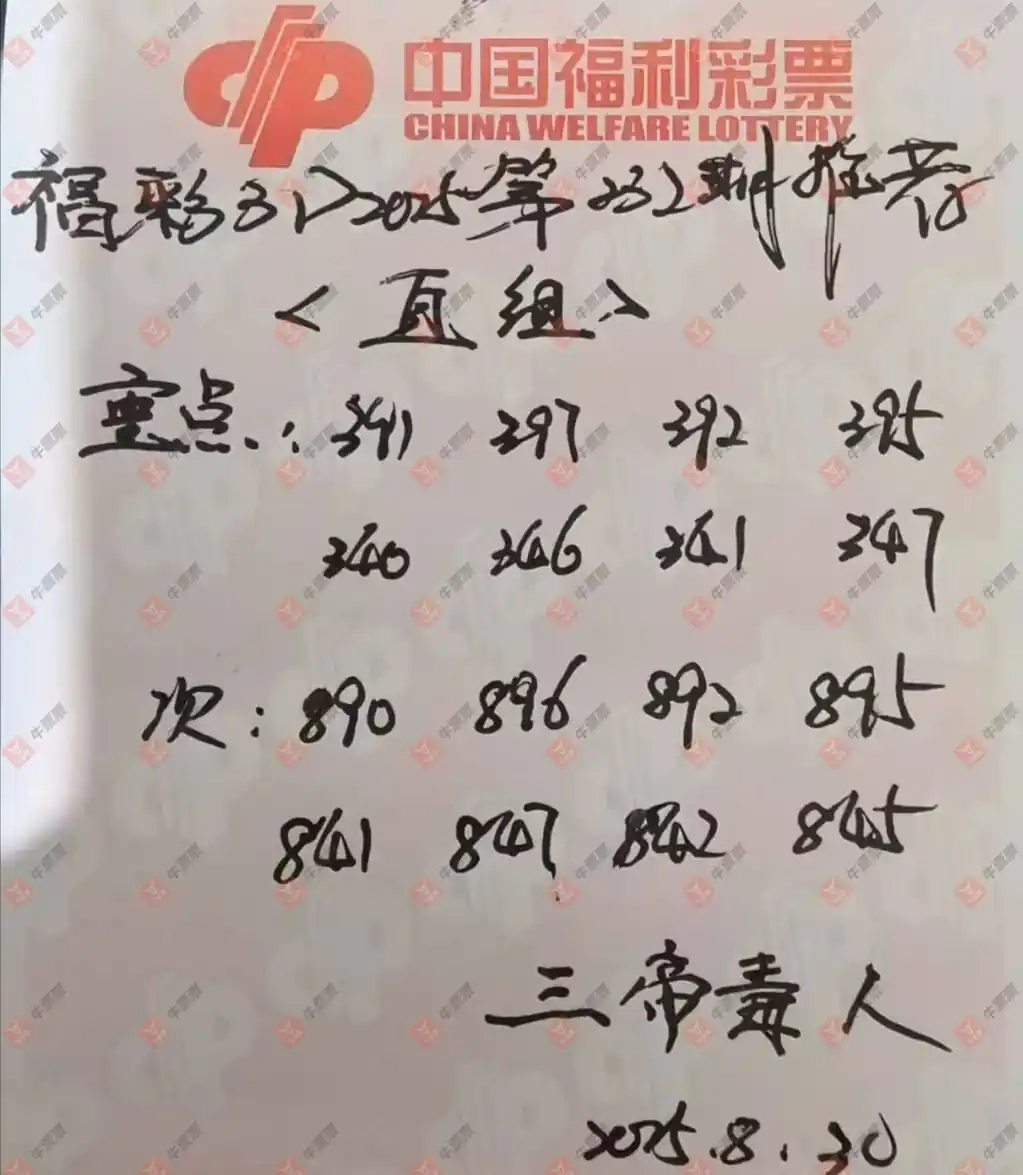 中国福利彩票
CHINA WELFARE LOTTERY
福彩3D2025第232期推荐
<直组>
重点: 391 397 392 395
340 346 341 347
次: 890 896 892 895
841 847 842 845
三帝毒人
2025.8.30
牛彩票